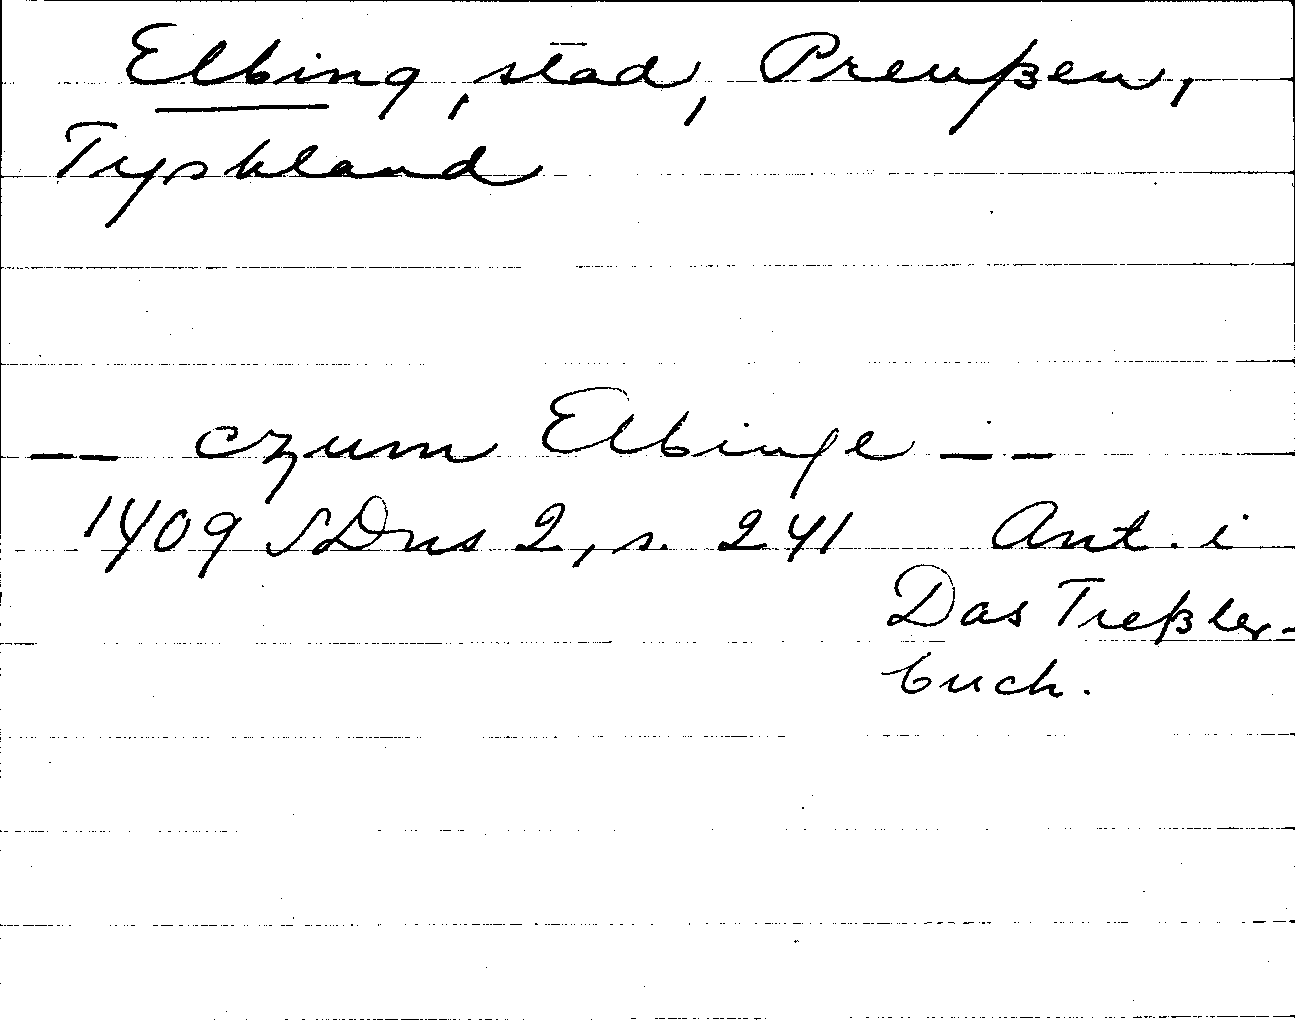 Elbing, stad, Preußen,
Tyskland
— czum Elbinge — —
1409 SDns 2, s. 241 Ant. i
Das Treßler-
buch.